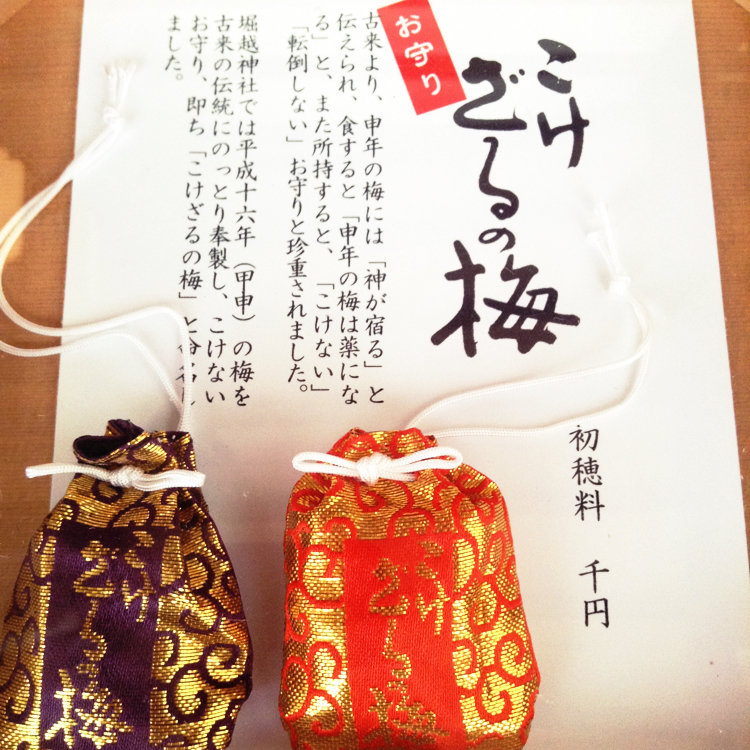 こけ
ざるの梅
お守り
古来より、申年の梅には「神が宿る」と
伝えられ、食すると「申年の梅は薬にな
る」と、また所持すると、「こけない」
「転倒しない」お守りと珍重されました。
堀越神社では平成十六年（甲申）の梅を
古来の伝統にのっとり奉製し、こけない
お守り、即ち「こけざるの梅」と命名し
ました。
初穂料　千円
こけ
ざるの梅
こけ
ざるの梅